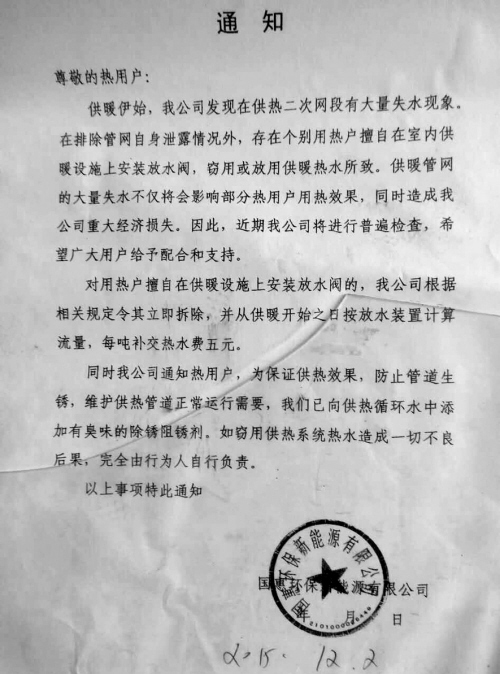 通 知
尊敬的热用户：
供暖伊始，我公司发现在供热二次网段有大量失水现象。
在排除管网自身泄露情况外，存在个别用热户擅自在室内供
暖设施上安装放水阀，窃用或放用供暖热水所致。供暖管网
的大量失水不仅将会影响部分热用户用热效果，同时造成我
公司重大经济损失。因此，近期我公司将进行普遍检查，希
望广大用户给予配合和支持。
对用热户擅自在供暖设施上安装放水阀的，我公司根据
相关规定令其立即拆除，并从供暖开始之日按放水装置计算
流量，每吨补交热水费五元。
同时我公司通知热用户，为保证供热效果，防止管道生
锈，维护供热管道正常运行需要，我们已向供热循环水中添
加有臭味的除锈阻锈剂。如窃用供热系统热水造成一切不良
后果，完全由行为人自行负责。
以上事项特此通知
国惠环保新能源有限公司
国惠环保新能源有限公司
年 月 日
2015. 12.2